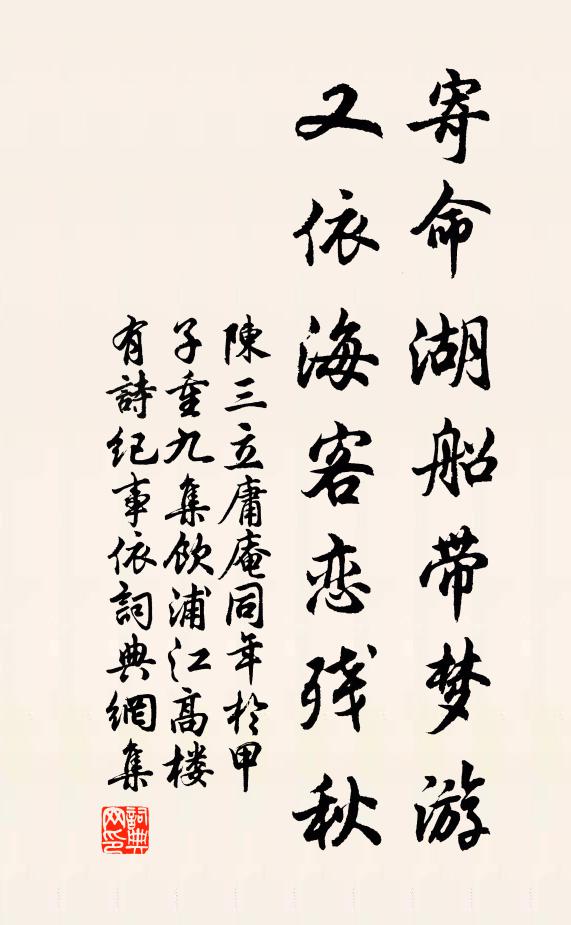 寄命湖船带梦游
又依海客恋残秋
陳三立庸庵同年於甲
子重九集飲浦江高楼
有詩纪事依詞典網集
詞典网印